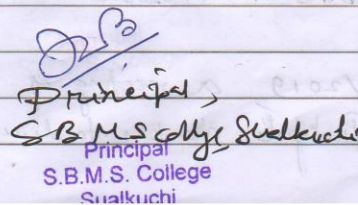 Principal,
S.B.M.S college, Sualkuchi
Principal
S.B.M.S. College
Sualkuchi